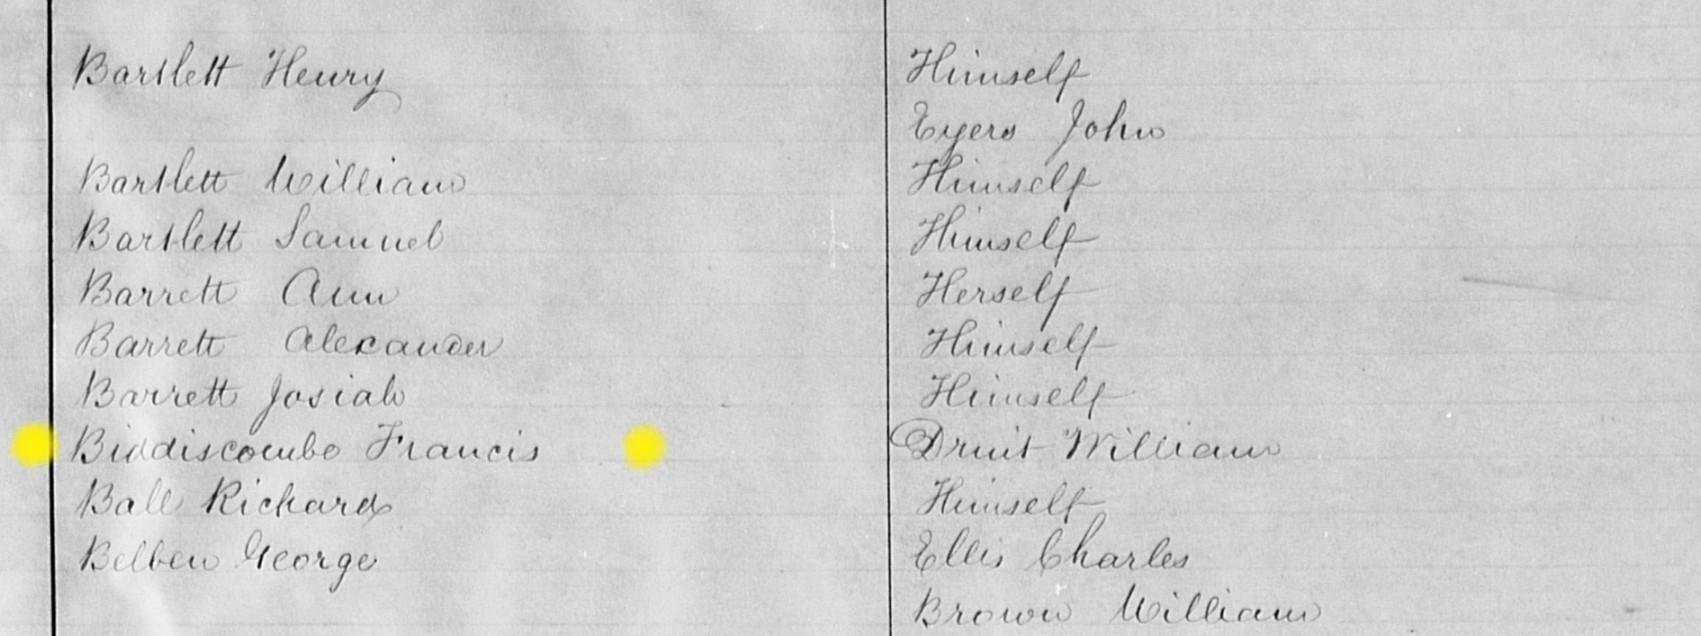 Bartlett Henry Himself
Eyers John
Bartlett William Himself
Bartlett Samuel Himself
Barrett Ann Herself
Barrett Alexander Himself
Barrett Josiah Himself
Biddiscombe Francis Druit William
Ball Richard Himself
Belben George Ellis Charles
Brown William